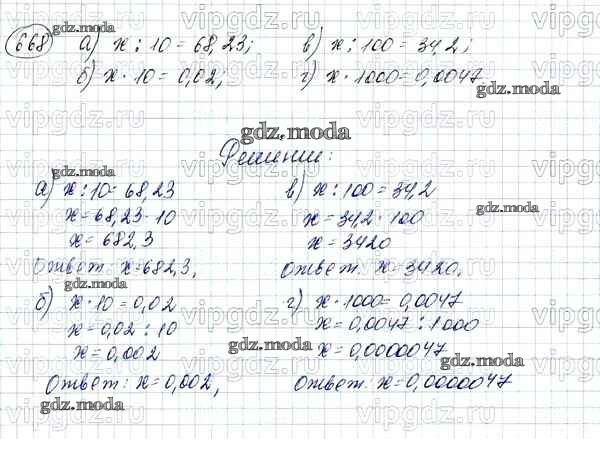 668 а) x : 10 = 68,23; в) x : 100 = 34,2;
б) x · 10 = 0,02; г) x · 1000 = 0,0047
gdz.moda
gdz.moda
gdz.moda
Решение:
а) x : 10 = 68,23
x = 68,23 · 10
x = 682,3
Ответ: x = 682,3,
в) x : 100 = 34,2
x = 34,2 · 100
x = 3420
Ответ: x = 3420,
gdz.moda
gdz.moda
gdz.moda
б) x · 10 = 0,02
x = 0,02 : 10
x = 0,002
Ответ: x = 0,002,
г) x · 1000 = 0,0047
x = 0,0047 : 1000
x = 0,0000047
Ответ: x = 0,0000047
gdz.moda
gdz.moda
gdz.moda
gdz.moda
vipgdz.ru